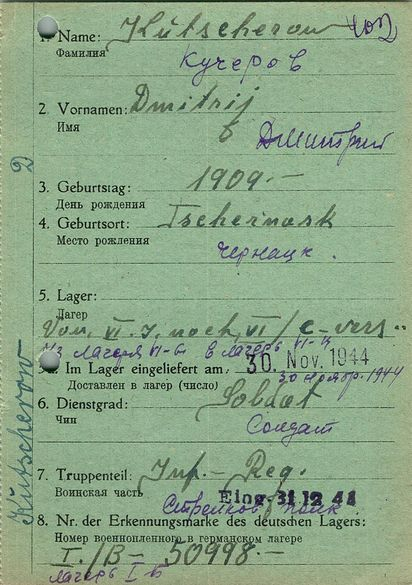 1. Name: Kutscherow
Фамилия
Кучеров
2. Vornamen: Dmitrij
Имя
Дмитрий
3. Geburtstag: 1909.-
День рождения
4. Geburtsort: Tschernask
Место рождения
Чернацк.
5. Lager:
Лагер
Von VI. J. nach VI/C-vers-
Из лагеря VI-Ы в лагерь VI-Ц
5a. Im Lager eingeliefert am: 30. Nov. 1944
Доставлен в лагер (число) 30 ноябр. 1944
6. Dienstgrad: Soldat
Чин
Солдат
7. Truppenteil: Inf.- Reg.
Воинская часть
Eing. 31 12 44
Стрелков. полк.
8. Nr. der Erkennungsmarke des deutschen Lagers:
Номер военнопленного в германском лагере
I./B- 50998.-
лагерь I-Б
Kutscherow D